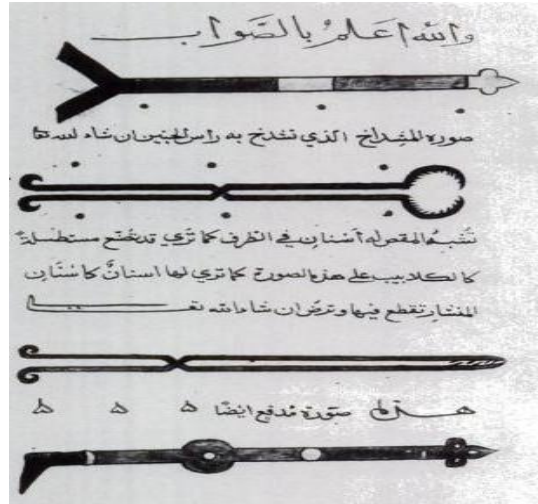 والله اعلم بالصواب
صورة المشداخ الذي تشدخ به راس الجنين ان شاء الله
تشبه المقص له أسنان في الطرف كما تري قد تصنع مستطيلة
كالكلاليب على هذه الصورة كما تري لها اسنان كاسنان
المنشار تقطع فيها وترض ان شاء الله تعـ
صورة مدفع ايضا